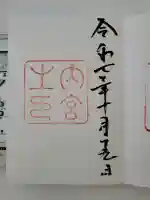 令和七年十月五日
内宮
之印